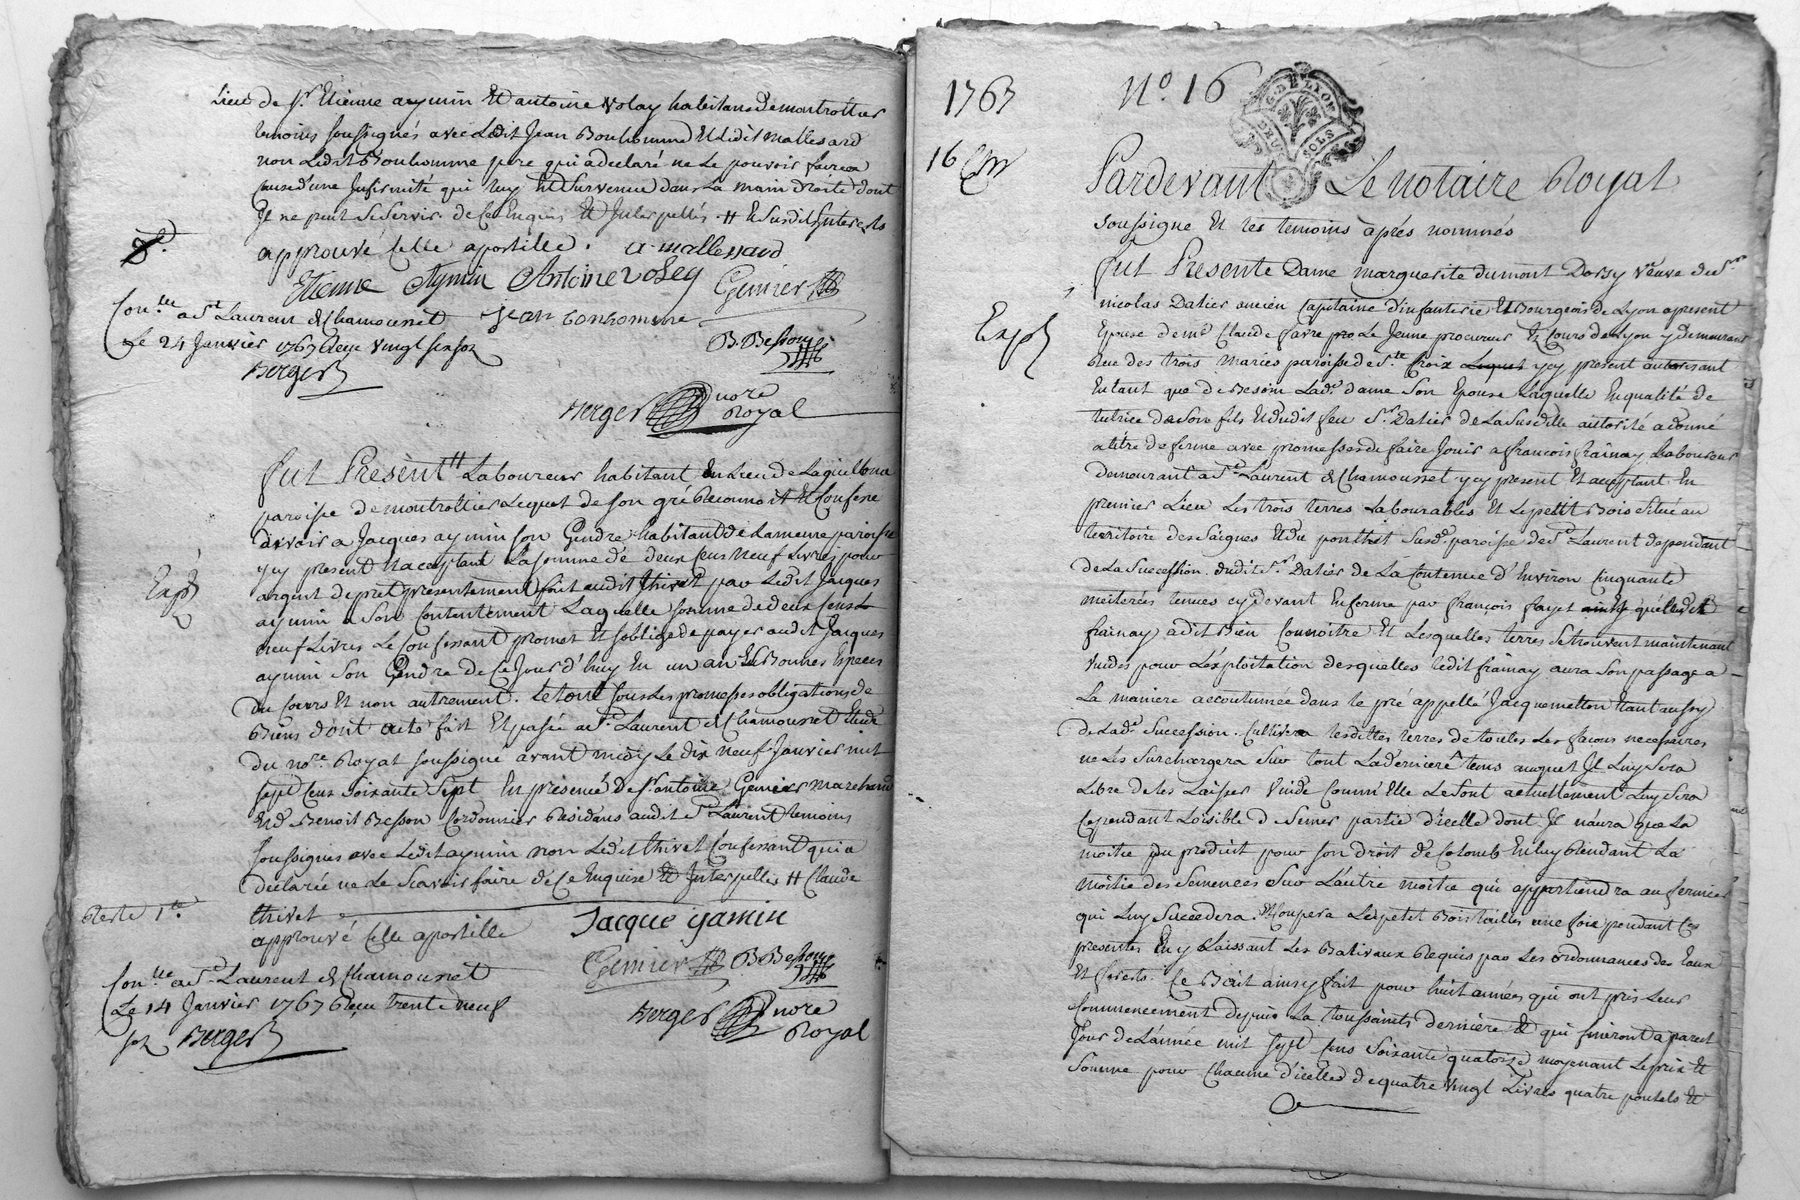 Lieu de Sr. Etienne aymin Et antoine Volay habitans de montrottier
temoins soussignés avec Ledit Jean Bonhomme Et Ledit mallessard
non Ledit Bonhomme pere qui a declaré ne Le pouvoir faire a
cause d'une Infirmité qui luy Est Survenue dans La main droite dont
Il ne peut Se Servir de Ce Enquis Et Interpellés # Et Susdit Interests
approuvé Celle apostille. a mallessard
Etienne Aymin Antoine voley Genier
Con.lle a St Laurent de Chamousset Jean bonhomme
Le 24 Janvier 1767 Reçu vingt six sols B. Besson
Berger
Berger nore Royal
Fut Present # Laboureur habitant En Lieu de Laguillona
paroisse de montrottier Lequel de son gré Reconnoit Et Confesse
devoir a Jacques aymin son Gendre habitant de La meme paroisse
y cy present Et acceptant La somme de deux Cens neuf Livres pour
argent de pret presentement fait audit thivet par Ledit Jacques
aymin a Son Contentement Laquelle somme de deux Cens
neuf Livres Le Confessant promet Et s'oblige de payer audit Jacques
aymin son Gendre de Ce Jour d'huy En un an En Bonnes Especes
du Cours Et non autrement. Le tout sous Les promesses obligations de
Biens dont acte fait Et passé a St. Laurent de Chamousset Etude
du nore. Royal soussigné avant midy Le dix neuf Janvier mil
sept Cens soixante Sept En presence de Sr. antoine Genier marchand
Et de Benoit Besson Cordonnier Residans audit St. Laurent temoins
soussignés avec Ledit aymin non Ledit thivet Confessant qui a
declaré ne Le Scavoir faire de Ce Enquis Et Interpellés # Claude
thivet
Reste 1 te.
approuvé Celle apostille Jacque yamin
Genier B. Besson
Con.lle a St. Laurent de Chamousset
Le 14 Janvier 1767 Reçu trente neuf
sols Berger
Berger nore Royal
Exp
1767 No. 16
G. DE LYON DEUX SOLS
16
Pardevant Le notaire Royal
soussigné Et les temoins après nommés
Fut Presente Dame marguerite dumont Dorsy Veuve du Sr.
nicolas Datier ancien Capitaine d'infanterie Et Bourgeois de Lyon a present
Epouse de me. Claude favre pro Le Jeune procureur Es Cours de Lyon y demeurant
Rue des trois maries paroisse de Ste. Croix Lequel ycy present autorisant
En tant que de Besoin Lade. dame Son Epouse Laquelle En qualité de
tutrice de Son fils Et dudit feu Sr. Datier de La Susditte autorité a donné
a titre de ferme avec promesse de faire Jouir a francois frainay Laboureur
demeurant a St. Laurent de Chamousset ycy present Et acceptant En
premier Lieu Les trois terres Labourables Et Le petit Bois Situé au
territoire des Saignes Et du ponthet susd. paroisse de St. Laurent dependant
de La Succession dudit Sr. Datier de La Contenue d'Environ Cinquante
meiterées tenues cy devant En ferme par françois fayet ainsy que Ledit
frainay a dit Bien Connoitre Et Lesquelles terres Se trouvent maintenant
vuides pour L'exploitation desquelles Ledit frainay aura Son passage a
La maniere accoutumée dans le pré appellé Jacquemetton Etant aussy
de Lade. Succession. Cultivera Lesdittes terres de toutes Les façons necessaires
ne Les Surchargera Sur tout La derniere tems auquel Il Luy Sera
Libre de les Laisser Vuide Comm' Elle Le Sont actuellement Luy Sera
Cependant Loisible de Semer partie d'icelle dont Il n'aura que La
moitie du produit pour son droit de Colomb En luy Rendant La
moitie des Semences Sur L'autre moitie qui appartiendra au fermier
qui Luy Succedera. Et Coupera Le petit Bois taillis une fois pendant Ces
presentes En y Laissant Les Balivaux Requis par Les ordonnances des Eaux
Et forests. Ce Bail ainsy fait pour huit années qui ont pris Leur
Commencement depuis La toussaints derniere Et qui finiront a pareil
Jour de L'année mil sept Cens Soixante quatorze moyenant Le prix Et
Somme pour Chacune d'icelles de quatre Vingt Livres quatre poulets Et
Exp